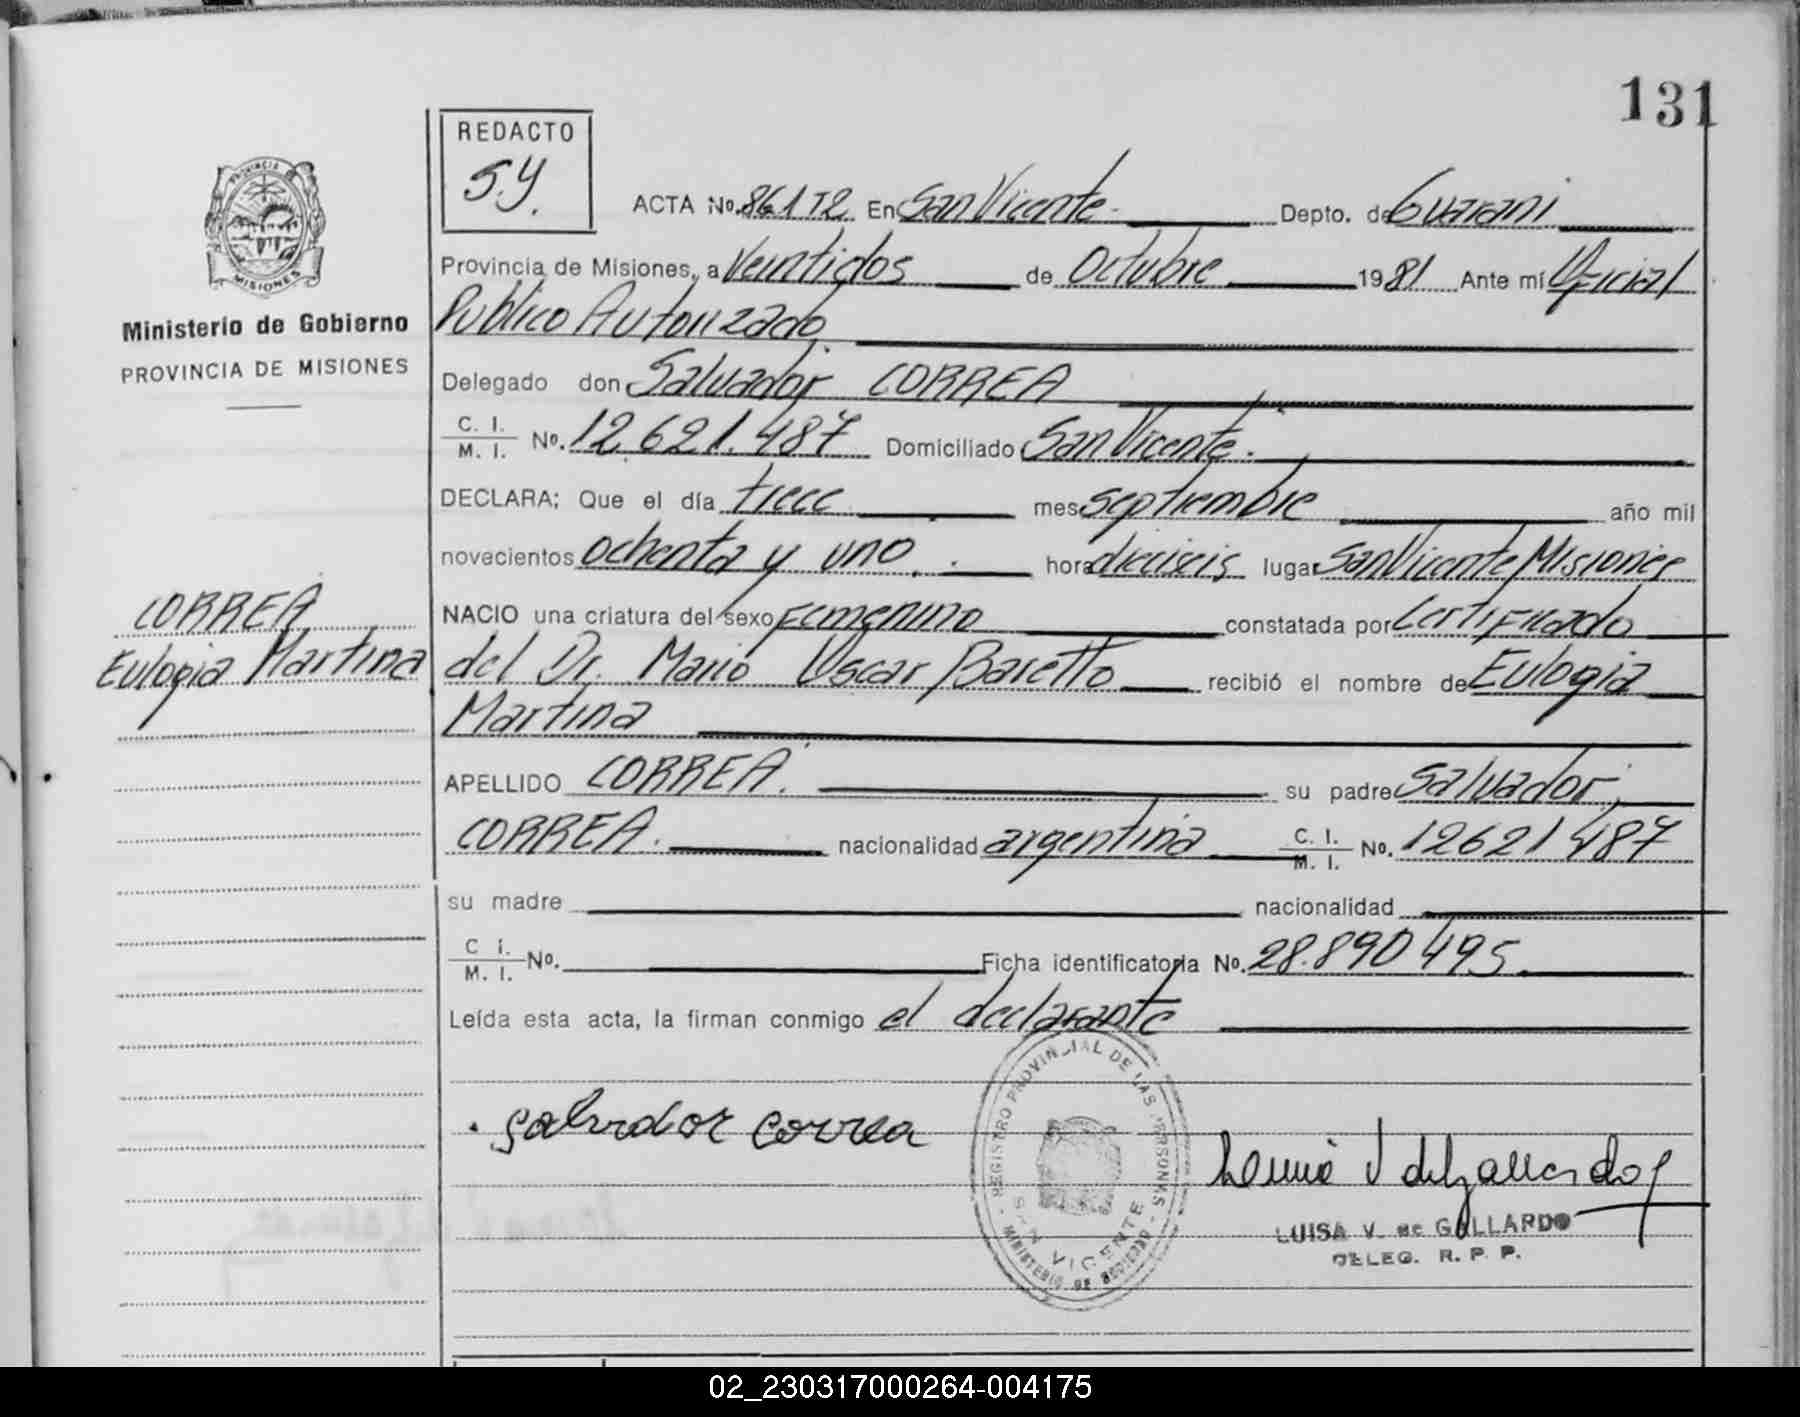 131
REDACTO
S.Y.
PROVINCIA DE
MISIONES
Ministerio de Gobierno
PROVINCIA DE MISIONES
CORREA
Eulogia Martina
ACTA No. 861 T2 En San Vicente Depto. de Guarani
Provincia de Misiones, a Veintidos de Octubre 1981 Ante mí Oficial
Publico Autorizado
Delegado don Salvador CORREA
C. I. M. I. No. 12.621.487 Domiciliado San Vicente.
DECLARA; Que el día trece mes septiembre año mil
novecientos ochenta y uno. hora dieciseis lugar San Vicente Misiones
NACIO una criatura del sexo Femenino constatada por Certificado
del Dr. Mario Oscar Baretto recibió el nombre de Eulogia
Martina
APELLIDO CORREA. su padre Salvador
CORREA. nacionalidad argentina C. I. M. I. No. 12621487
su madre nacionalidad
C. I. M. I. No. Ficha identificatoria No. 28.890495
Leída esta acta, la firman conmigo el declarante
Salvador Correa
REGISTRO PROVINCIAL DE LAS PERSONAS
SAN VICENTE
MINISTERIO DE GOBIERNO
LUISA V. de GALLARDO
DELEG. R. P. P.
02_230317000264-004175